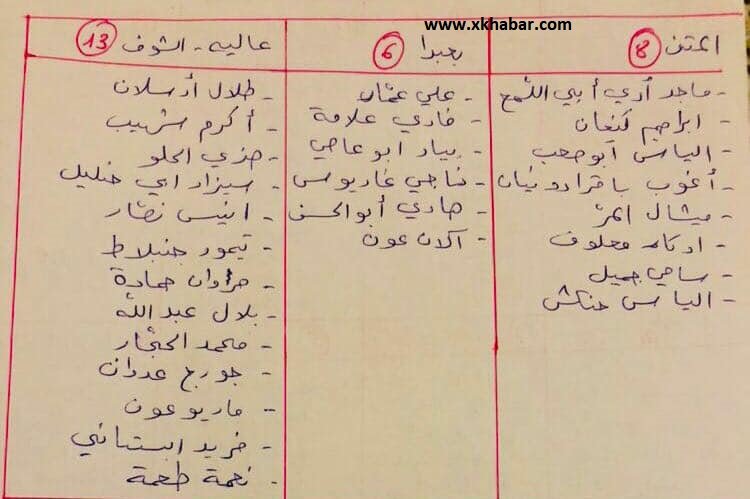 www.xkhabar.com
المتن 8
- ماجد أدي أبي اللمع
- ابراهيم كنعان
- الياس أبو صعب
- أغوب باقرادونيان
- ميشال المرّ
- ادكار معلوف
- سامي جميل
- الياس حنكش
بعبدا 6
- علي عمّار
- فادي علامة
- بيار ابو عاصي
- ناجي غاريوس
- هادي أبو الحسن
- آلان عون
عاليه - الشوف 13
- طلال أرسلان
- أكرم شهيب
- هنري الحلو
- سيزار ابي خليل
- انيس نصّار
- تيمور جنبلاط
- مروان حمادة
- بلال عبدالله
- محمد الحجّار
- جورج عدوان
- ماريو عون
- فريد البستاني
- نعمة طعمة